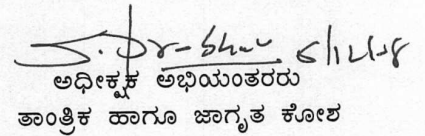 ಅಧೀಕ್ಷಕ ಅಭಿಯಂತರರು
ತಾಂತ್ರಿಕ ಹಾಗೂ ಜಾಗೃತ ಕೋಶ